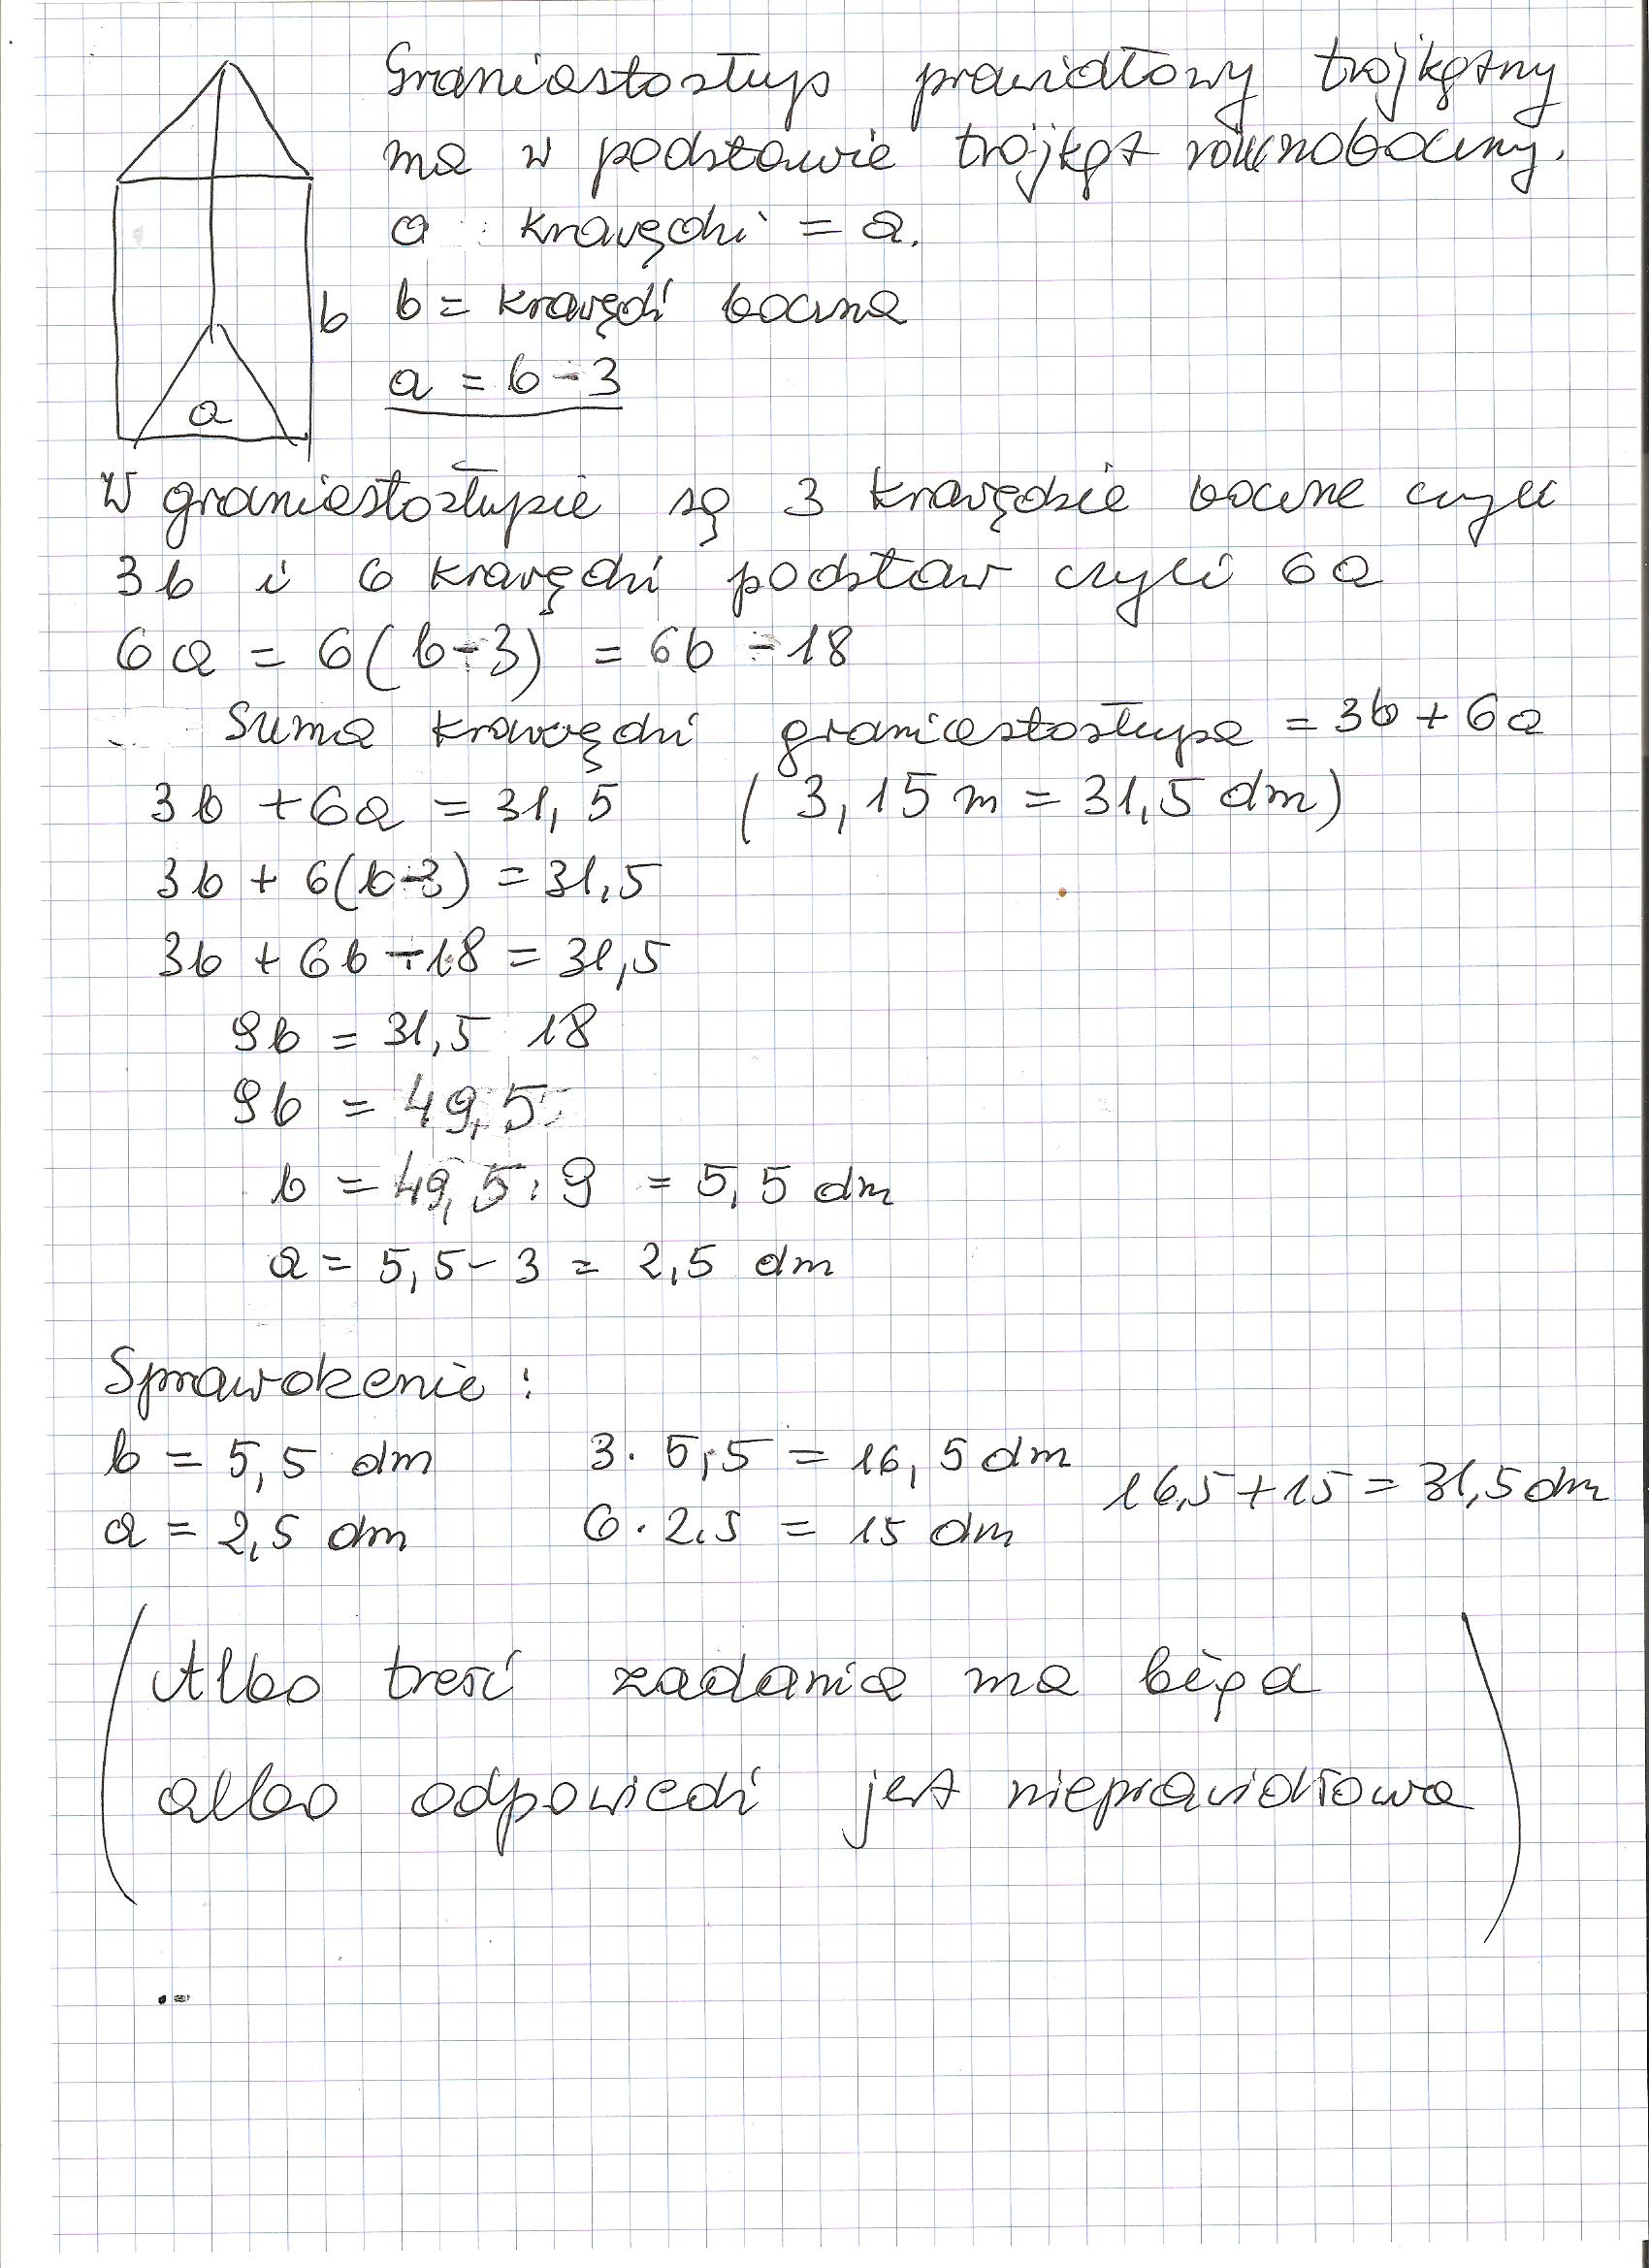 Graniastosłup prawidłowy trójkątny
ma w podstawie trójkąt równoboczny.
a krawędź = a.
b = krawędź boczna
b
a = b - 3
a
W graniastosłupie są 3 krawędzie boczne czyli
3b i 6 krawędzi podstaw czyli 6a
6a = 6(b-3) = 6b - 18
Suma krawędzi graniastosłupa = 3b + 6a
3b + 6a = 31,5 (3,15 m = 31,5 dm)
3b + 6(b-3) = 31,5
3b + 6b - 18 = 31,5
9b = 31,5 18
9b = 49,5
b = 49,5 : 9 = 5,5 dm
a = 5,5 - 3 = 2,5 dm
Sprawdzenie :
b = 5,5 dm 3 · 5,5 = 16,5 dm
16,5 + 15 = 31,5 dm
a = 2,5 dm 6 · 2,5 = 15 dm
(Albo treść zadania ma błąd
albo odpowiedź jest nieprawidłowa)